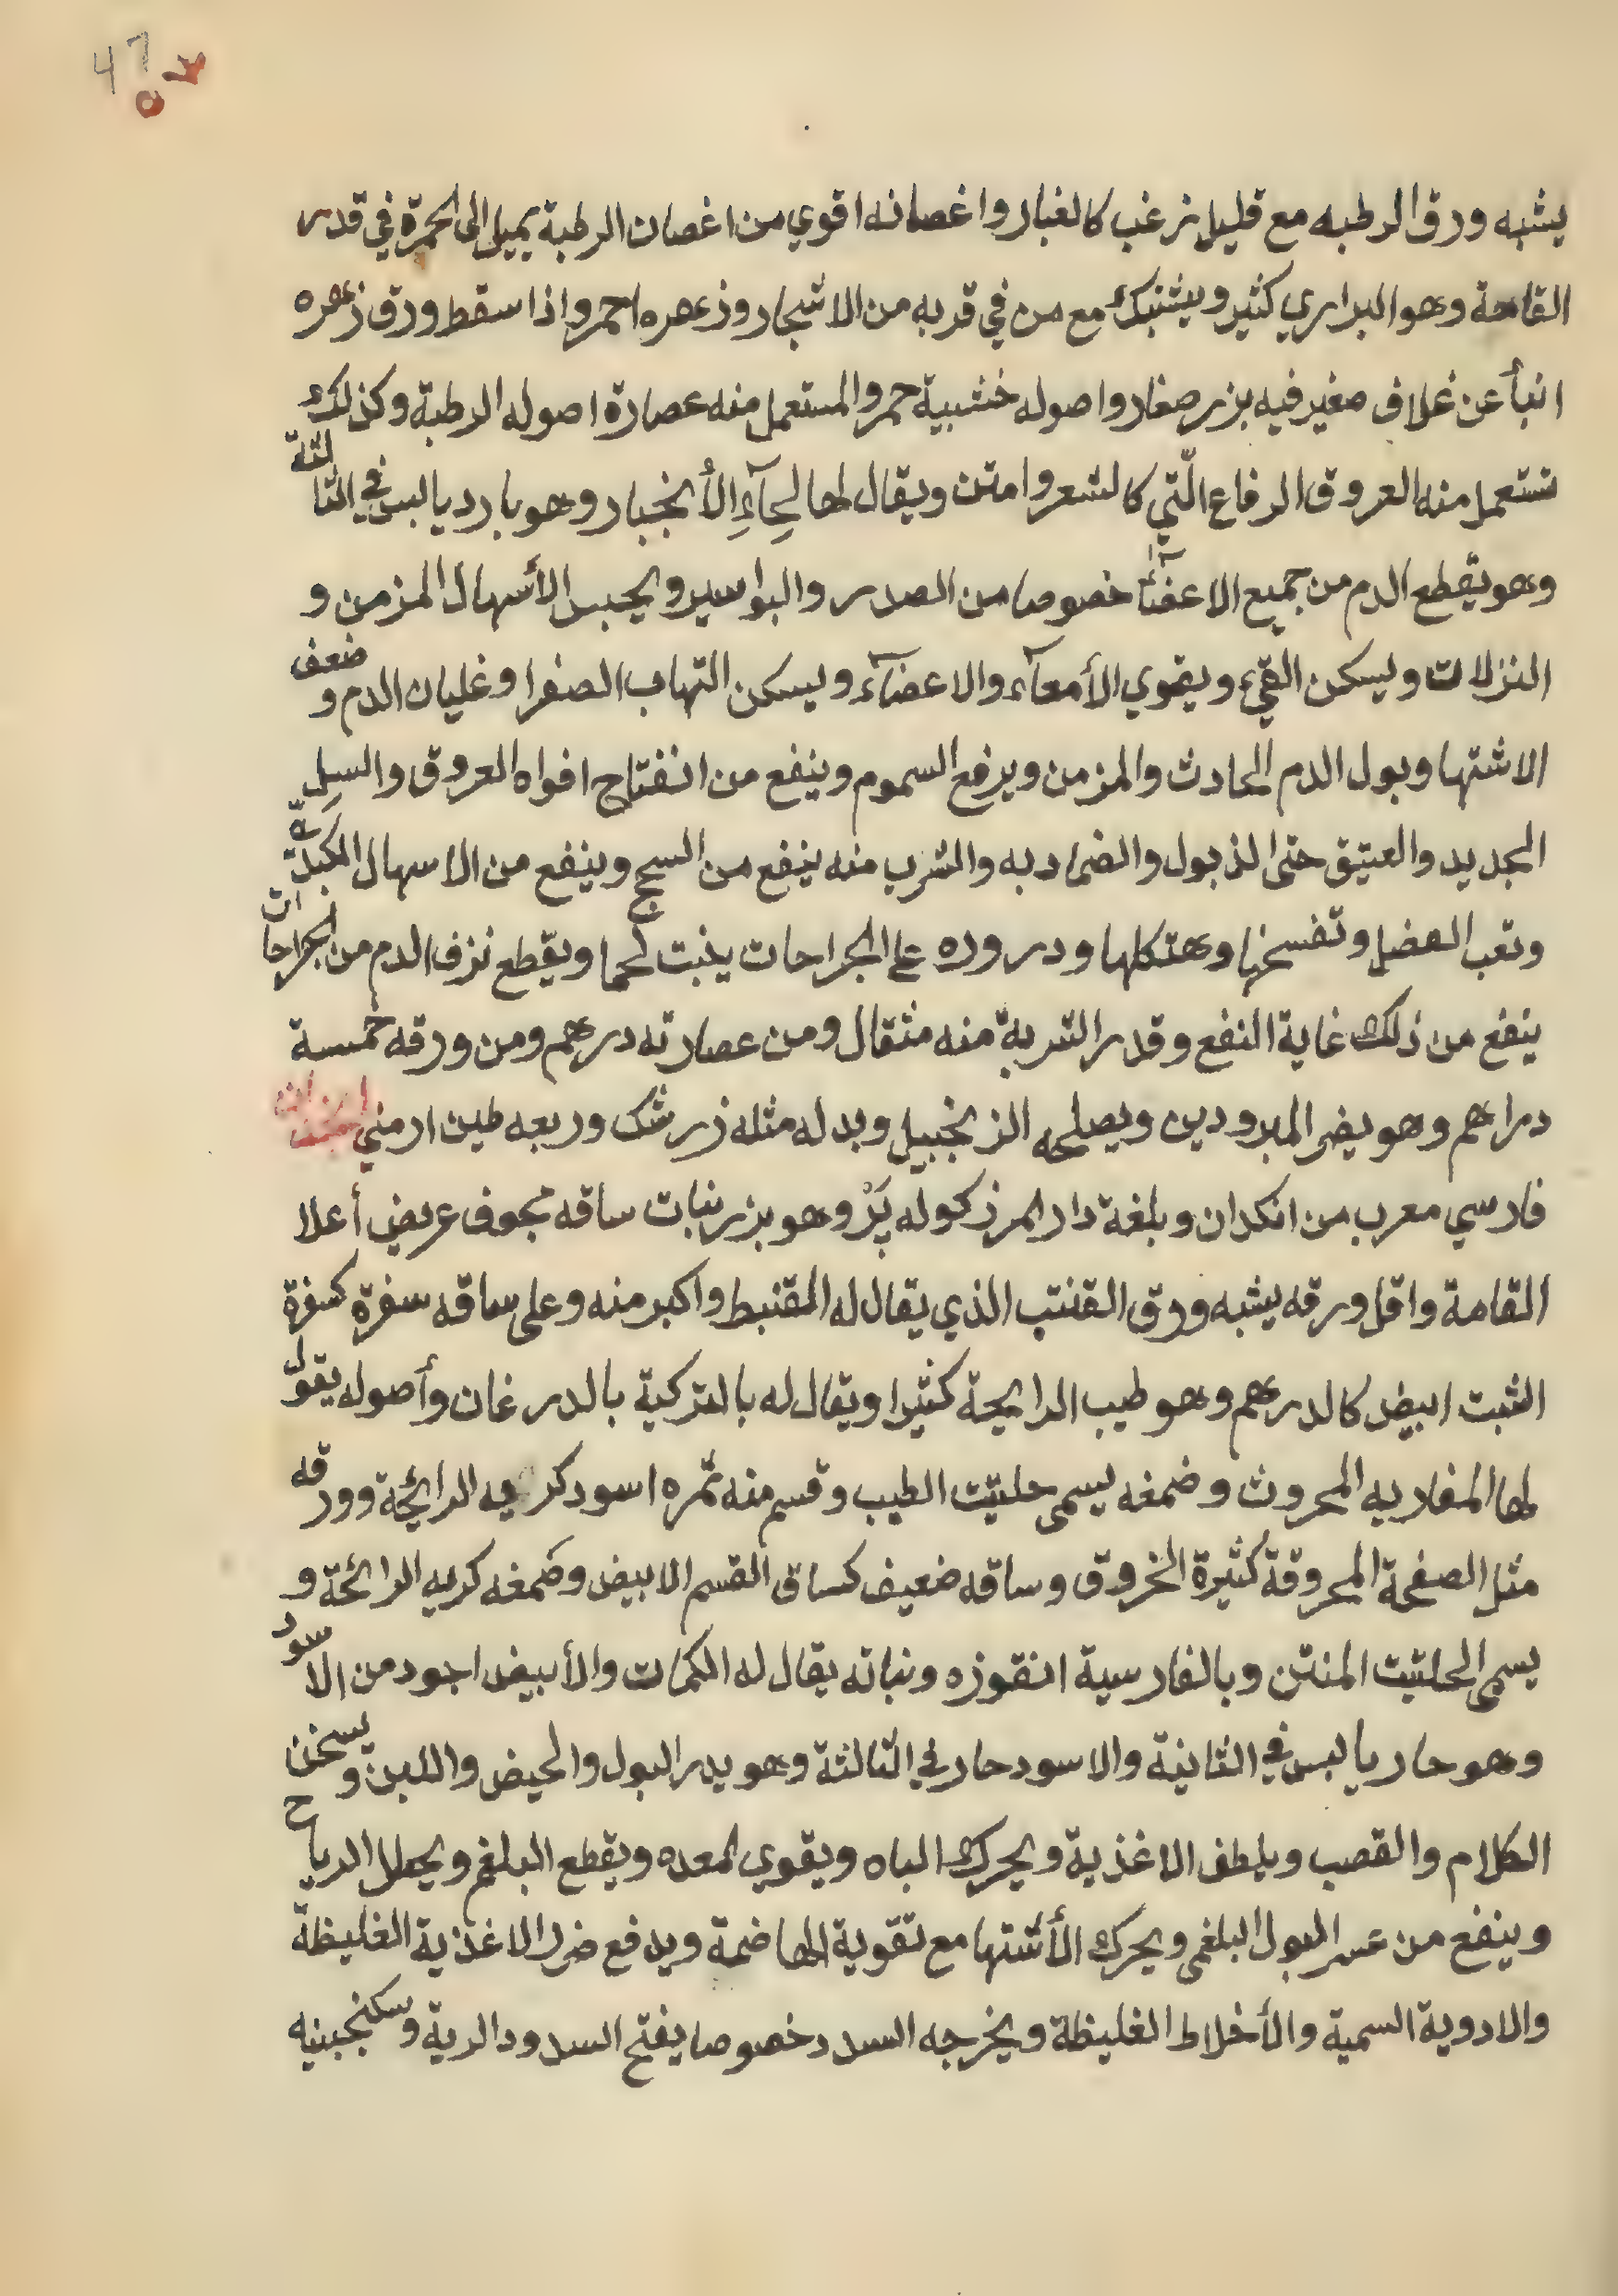 47
يشبه ورق الرطبه مع قليل زغب كالغبار واغصانه اقوي من اغصان الرطبة يميل الى الحمرة في قدر
القامة وهو البراري كثير ويشتبك مع من في قربه من الاشجار وزهره احمر واذا سقط ورق زهره
انبأ عن غلاف صغير فيه بزر صغار واصوله خشبية حمر والمستعمل منه عصارة اصوله الرطبة وكذلك
تستعمل منه العروق الرفاع الّتي كالشعر وامتن ويقال لها لِحآءِ الأنجبار وهو بارد يابس في الثالثة
وهو يقطع الدم من جميع الاعضآء خصوصا من الصدر والبواسير ويحبس الأسهال المزمن و
النزلات ويسكن القيء ويقوي الأمعآء والاعضآء ويسكن التهاب الصفرا وغليان الدم وضعف
الاشتها وبول الدم الحادث والمزمن ويرفع السموم وينفع من انفتاح افواه العروق والسِل
الجديد والعتيق حتى الذبول والضماد به والشرب منه ينفع من السحج وينفع من الاسهال الكبديّة
وتعب العضل وتفسخها وهتكلها ودروره على الجراحات ينبت لحما ويقطع نزف الدم من الجراحات
ينفع من ذلك غاية النفع وقدر الشربة منه مثقال ومن عصارته درهم ومن ورقه خمسة
دراهم وهو يضر المبرودين ويصلحه الزنجبيل وبدله مثله زرشك وربعه طين ارمني
فارسي معرب من انكدان وبلغة دار المرز كوله پَرْ وهو بزر نبات ساقه مجوف عريض أعلا
القامة واقل ورقه يشبه ورق القنتب الذي يقال له المقنبط واكبر منه وعلى ساقه سفرة كسفرة
الثبت ابيض كالدرهم وهو طيب الرايحة كثيرا ويقال له بالتركية بالدرغان وأصوله يقول
لها المغاربه المحروث وضمغه يسمى حلتيت الطيب وقسم منه ثمره اسود كريه الرائحة وورقه
مثل الصفحة المحروقة كثيرة الخروق وساقه ضعيف كساق القسم الابيض وضمغه كريه الرائحة و
يسمى الحلتيت المنتن وبالفارسية انقوزه ونباته يقال له الكمات والأبيض اجود من الاسود
وهو حار يابس في الثانية والاسود حار في الثالثة وهو يدر البول والحيض واللبن ويسخن
الكلام والقصب ويلطف الاغذية ويحرك الباه ويقوي المعده ويقطع البلغم ويحلل الرياح
وينفع من عسر البول البلغمي ويحرك الأشتها مع تقوية الهاضمة ويدفع ضرر الاغذية الغليظة
والادوية السمية والأخلاط الغليظة ويخرجه السدد خصوصا يفتح السدود الرية وسكنجبينه